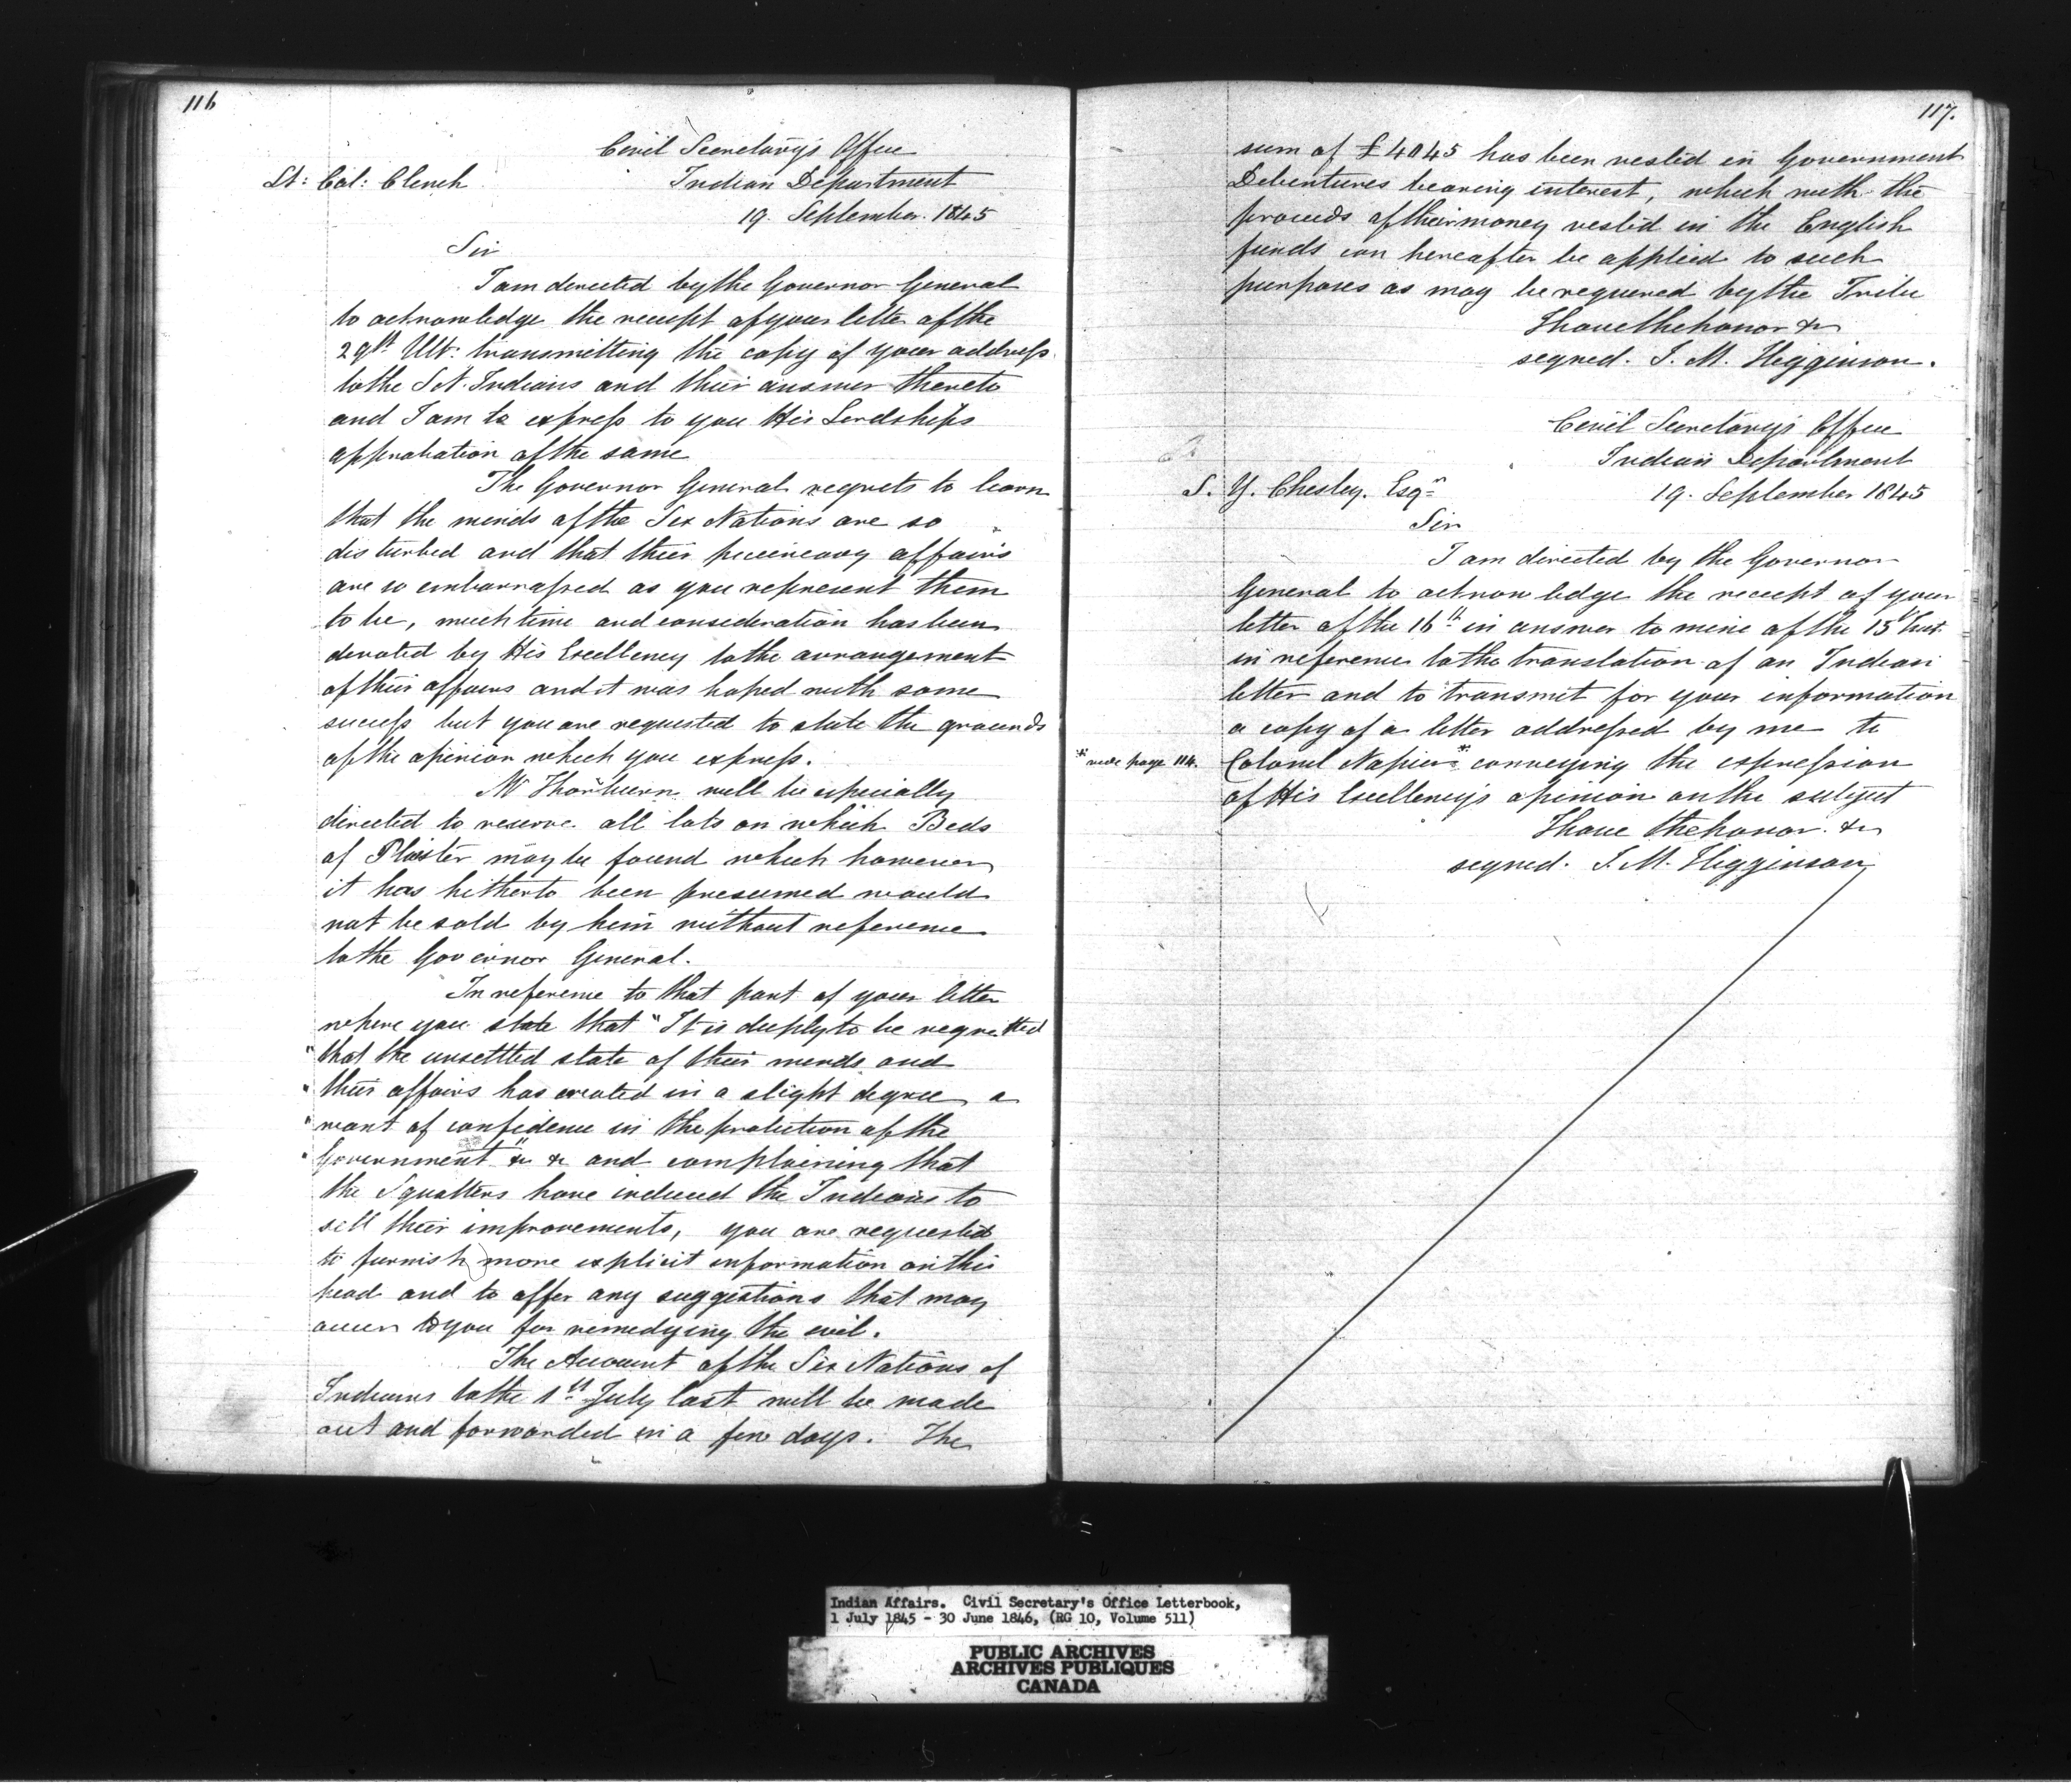 116
Civil Secretary's Office
Lt: Col: Clench
Indian Department
19. September. 1845
Sir
I am directed by the Governor General
to acknowledge the receipt of your letter of the
29th Ult. transmitting the copy of your address
to the S N. Indians and their answer thereto
and I am to express to you His Lordships
approbation of the same
The Governor General regrets to learn
that the minds of the Six Nations are so
disturbed and that their pecuniary affairs
are so embarrassed as you represent them
to be, much time and consideration has been
devoted by His Excellency to the arrangement
of their affairs and it was hoped with some
success but you are requested to state the grounds
of the opinion which you express.
Mr Thorburn will be especially
directed to reserve all lots on which Beds
of Plaister may be found which however
it has hitherto been presumed would
not be sold by him without reference
to the Governor General.
In reference to that part of your letter
where you state that "It is deeply to be regretted
"that the unsettled state of their minds and
"their affairs has created in a slight degree a
"want of confidence in the protection of the
"Government" &c &c and complaining that
the Squatters have induced the Indians to
sell their improvements, you are requested
to furnish more explicit information on this
head and to offer any suggestions that may
occur to you for remedying the evil.
The Account of the Six Nations of
Indians to the 1st July last will be made
out and forwarded in a few days. The
117.
sum of £4045 has been vested in Government
Debentures bearing interest, which with the
proceeds of their money vested in the English
funds can hereafter be applied to such
purposes as may be required by the Tribe
I have the honor &c
signed. J. M. Higginson.
Civil Secretary's Office
Indian Department
S. Y. Chesley. Esqr
19. September 1845
Sir
I am directed by the Governor
General to acknowledge the receipt of your
letter of the 16th in answer to mine of the 15 Inst.
in reference to the translation of an Indian
letter and to transmit for your information
a copy of a letter addressed by me to
* vide page 114.
Colonel Napier* conveying the expression
of His Excellency's opinion on the subject
I have the honor. &c
signed. J. M. Higginson
Indian Affairs. Civil Secretary's Office Letterbook,
1 July 1845 - 30 June 1846, (RG 10, Volume 511)
PUBLIC ARCHIVES
ARCHIVES PUBLIQUES
CANADA